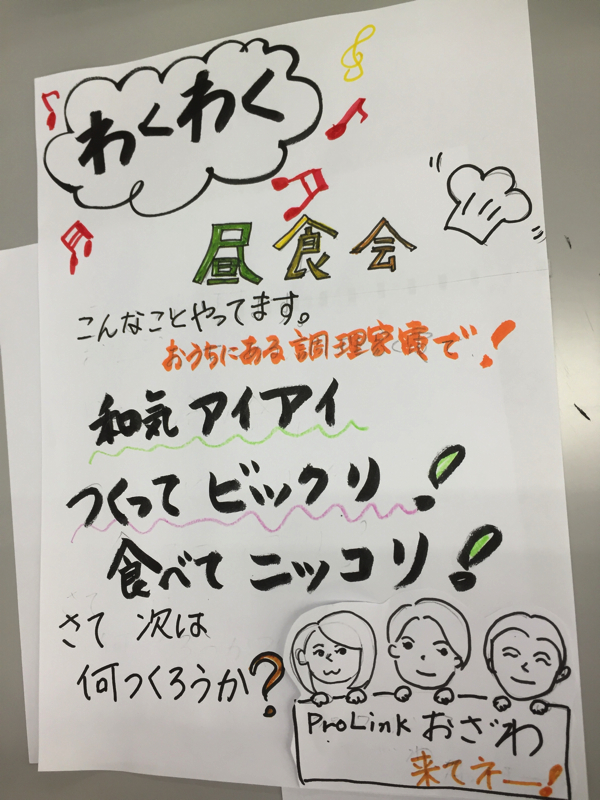 わくわく
昼食会
こんなことやってます。
おうちにある調理家電で!
和気アイアイ
つくってビックリ!
食べてニッコリ!
さて 次は
何つくろうか?
ProLink おざわ
来てネー!